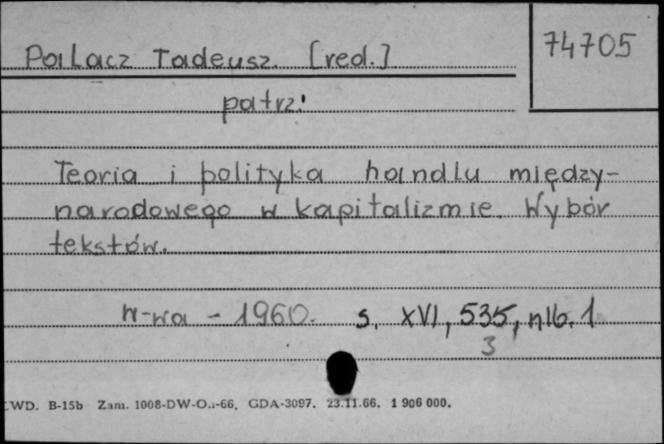 Pałacz Tadeusz. [red.]
74705
patrz:
Teoria i polityka handlu między-
narodowego w kapitalizmie. Wybór
tekstów.
W-wa - 1960. s. XVI, 535, nlb. 1
3
WD. B-15b Zam. 1008-DW-O..-66. GDA-3097. 23.11.66. 1 906 000.